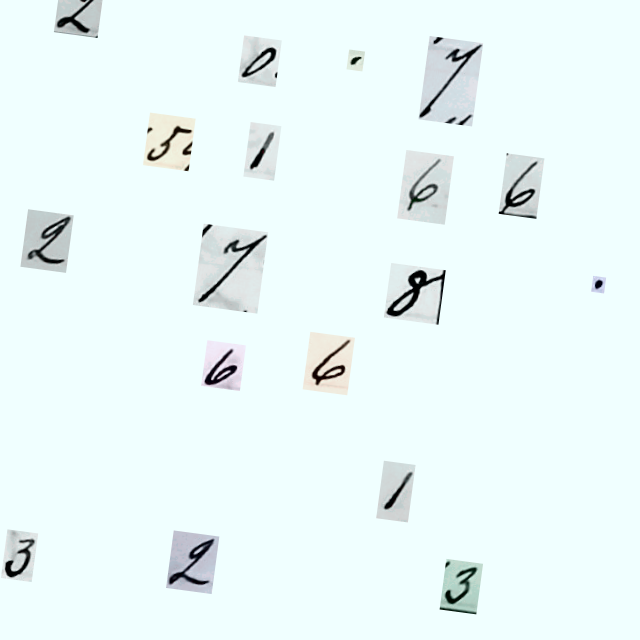 2 0 . 7
5 1 6 6
2 7 8 .
6 6
1
3 2 3